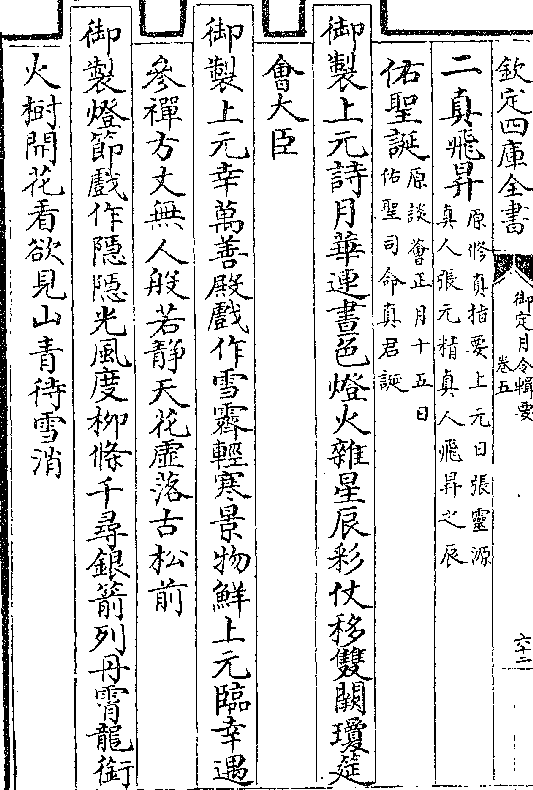 欽定四庫全書
御定月令輯要
卷五
六十二
二真飛昇原修真指要上元日張靈源
真人張元精真人飛昇之辰
佑聖誕原談薈正月十五日
佑聖司命真君誕
御製上元詩月華連晝色燈火雜星辰彩仗移雙闕瓊筵
會大臣
御製上元幸萬善殿戲作雪霽輕寒景物鮮上元臨幸遇
參禪方丈無人般若靜天花虛落古松前
御製燈節戲作隱隱光風度柳條千尋銀箭列丹霄龍銜
火樹開花看欲見山青待雪消